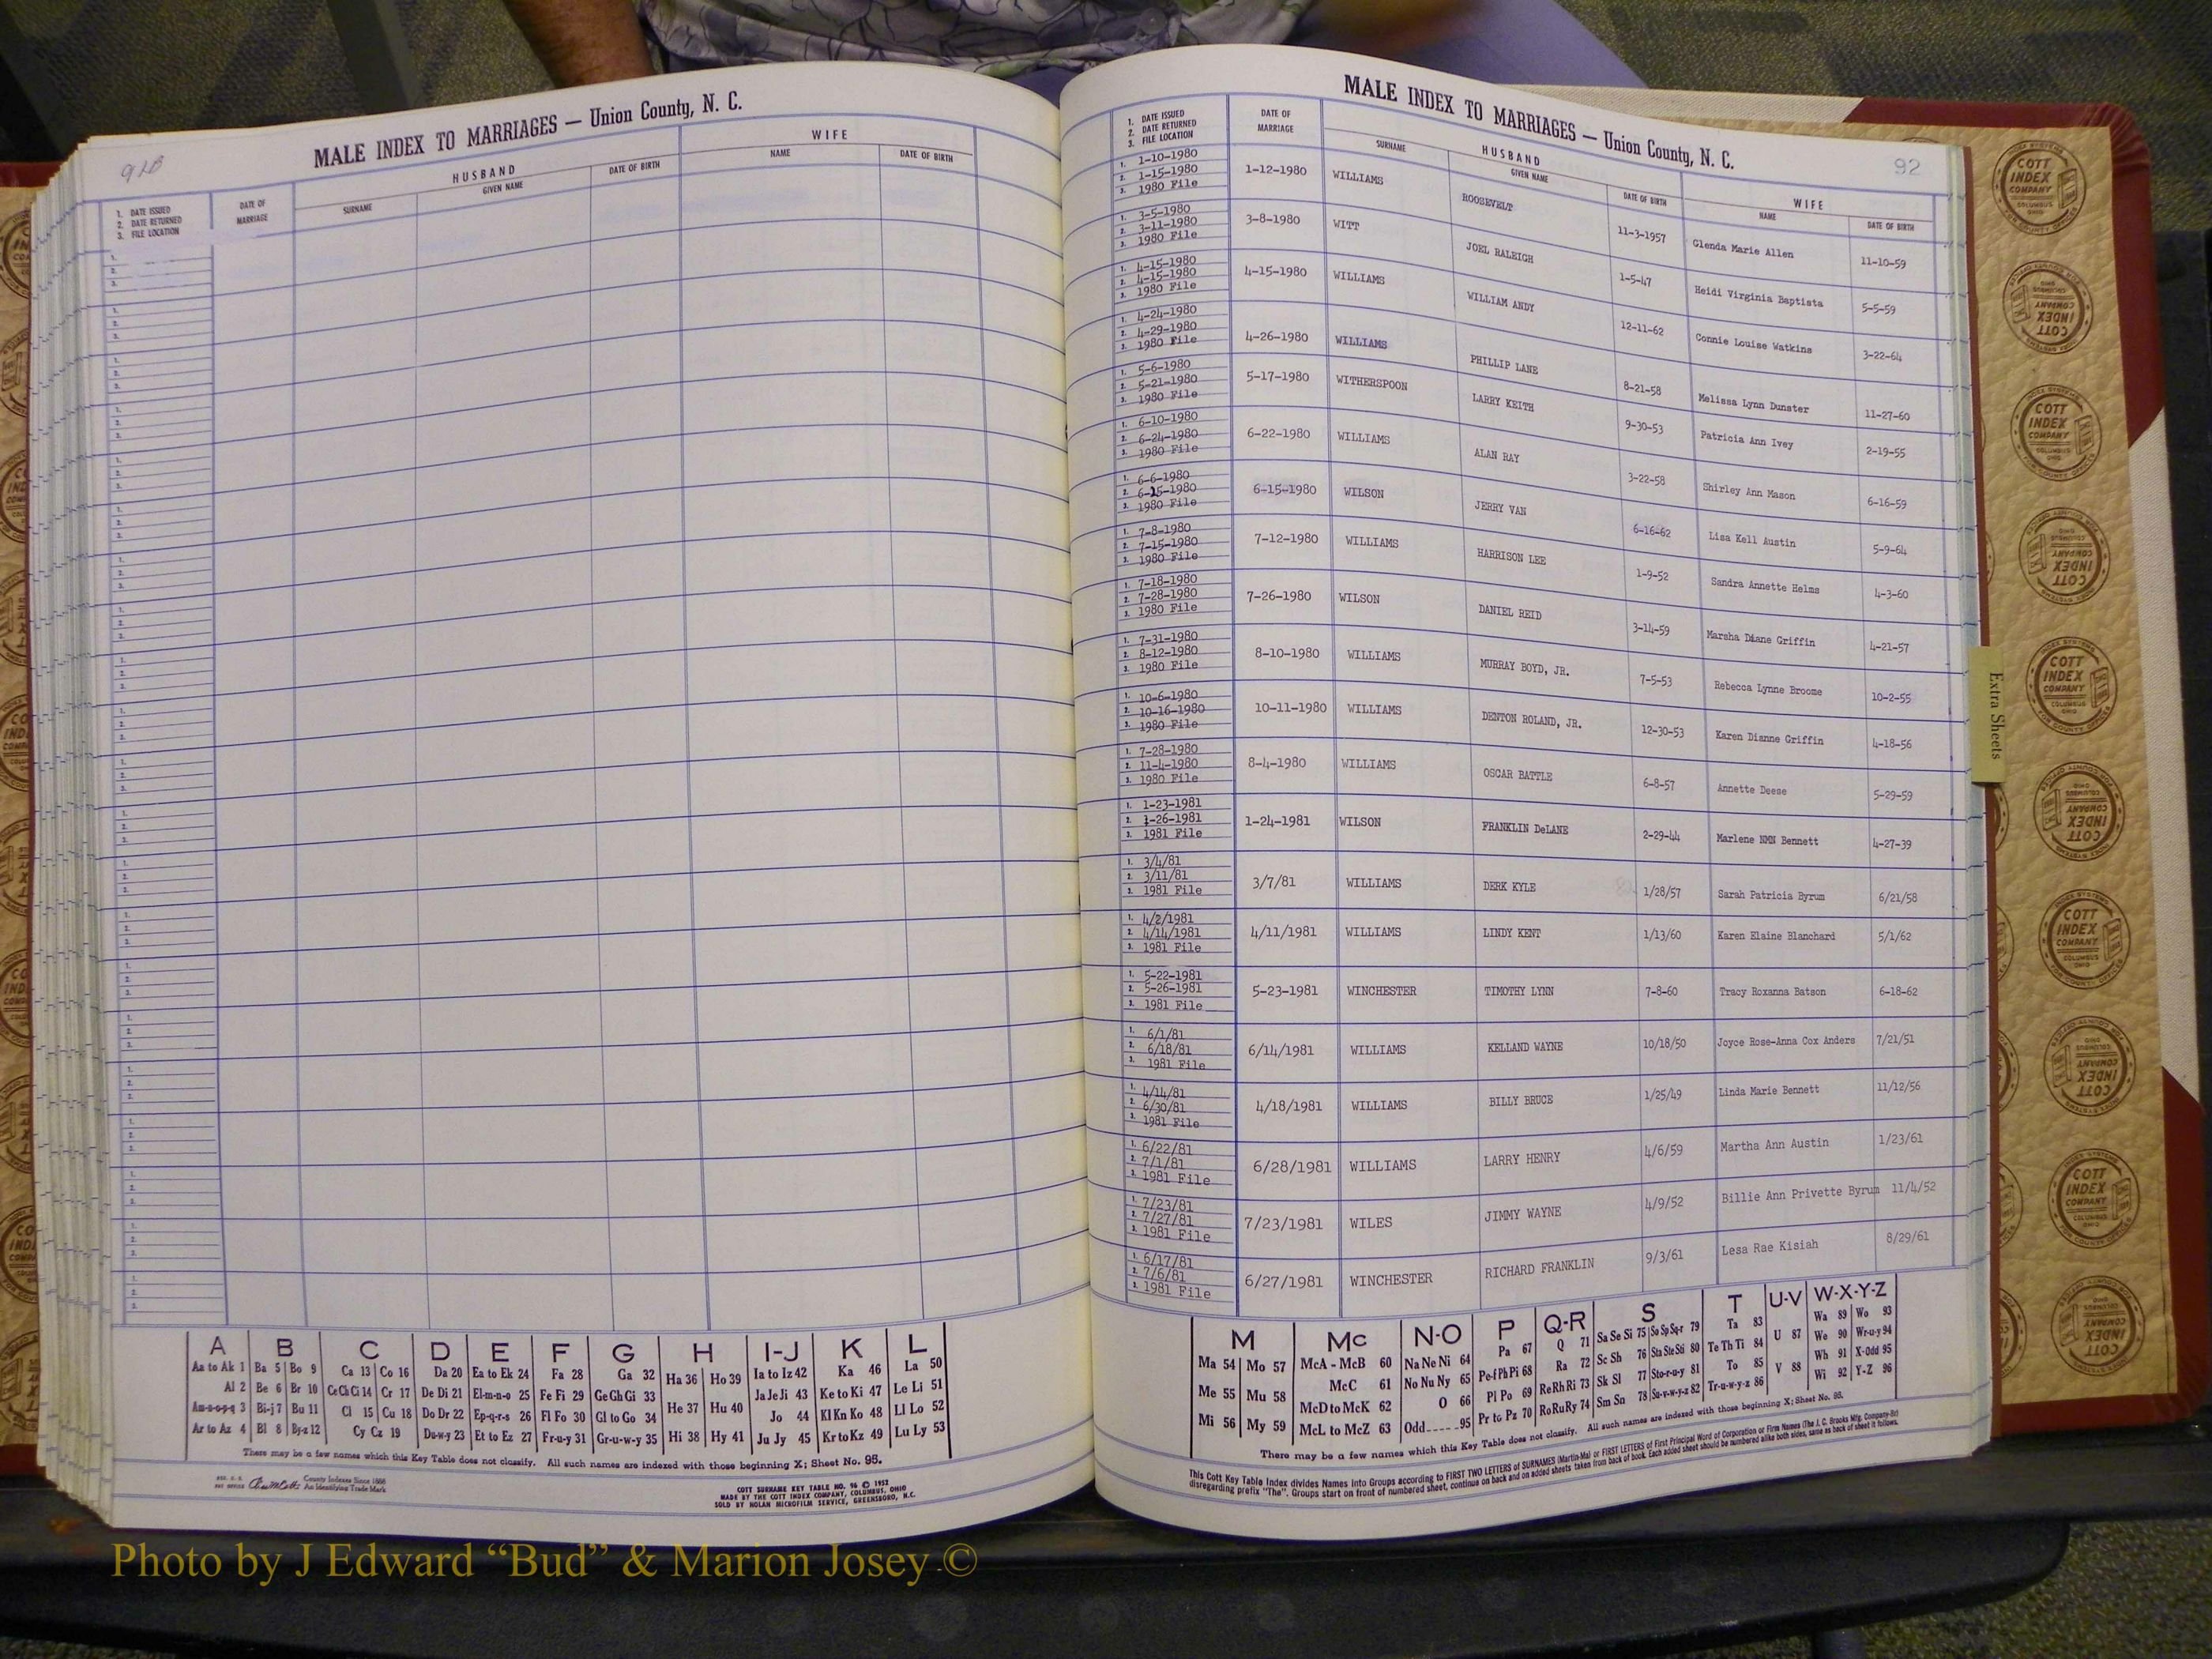 91B
MALE INDEX TO MARRIAGES — Union County, N. C.
1. DATE ISSUED
2. DATE RETURNED
3. FILE LOCATION
DATE OF MARRIAGE
HUSBAND
SURNAME GIVEN NAME DATE OF BIRTH
WIFE
NAME DATE OF BIRTH
A B C D E F G H I-J K L
Aa to Ak 1 Ba 5 Bo 9 Ca 13 Co 16 Da 20 Ea to Ek 24 Fa 28 Ga 32 Ha 36 Ho 39 Ia to Iz 42 Ka 46 La 50
Al 2 Be 6 Br 10 Ce Ch Ci 14 Cr 17 De Di 21 El-m-n-o 25 Fe Fi 29 Ge Gh Gi 33 He 37 Hu 40 Ja Je Ji 43 Ke to Ki 47 Le Li 51
Am-n-o-p-q 3 Bi-j 7 Bu 11 Cl 15 Cu 18 Do Dr 22 Ep-q-r-s 26 Fl Fo 30 Gl to Go 34 Jo 44 Kl Kn Ko 48 Ll Lo 52
Ar to Az 4 Bl 8 By-z 12 Cy Cz 19 Du-w-y 23 Et to Ez 27 Fr-u-y 31 Gr-u-w-y 35 Hi 38 Hy 41 Ju Jy 45 Kr to Kz 49 Lu Ly 53
There may be a few names which this Key Table does not classify. All such names are indexed with those beginning X; Sheet No. 95.
County Indexes Since 1888
An Identifying Trade Mark
COTT SURNAME KEY TABLE NO. 96 © 1952
MADE BY THE COTT INDEX COMPANY, COLUMBUS, OHIO
SOLD BY NOLAN MICROFILM SERVICE, GREENSBORO, N.C.
MALE INDEX TO MARRIAGES — Union County, N. C.
92
1. DATE ISSUED
2. DATE RETURNED
3. FILE LOCATION
DATE OF MARRIAGE
HUSBAND
SURNAME GIVEN NAME DATE OF BIRTH
WIFE
NAME DATE OF BIRTH
1. 1-10-1980
2. 1-15-1980
3. 1980 File
1-12-1980 WILLIAMS ROOSEVELT 11-3-1957 Glenda Marie Allen 11-10-59
1. 3-5-1980
2. 3-11-1980
3. 1980 File
3-8-1980 WITT JOEL RALEIGH 1-5-47 Heidi Virginia Baptista 5-5-59
1. 4-15-1980
2. 4-15-1980
3. 1980 File
4-15-1980 WILLIAMS WILLIAM ANDY 12-11-62 Connie Louise Watkins 3-22-64
1. 4-24-1980
2. 4-29-1980
3. 1980 File
4-26-1980 WILLIAMS PHILLIP LANE 8-21-58 Melissa Lynn Dunster 11-27-60
1. 5-6-1980
2. 5-21-1980
3. 1980 File
5-17-1980 WITHERSPOON LARRY KEITH 9-30-53 Patricia Ann Ivey 2-19-55
1. 6-10-1980
2. 6-24-1980
3. 1980 File
6-22-1980 WILLIAMS ALAN RAY 3-22-58 Shirley Ann Mason 6-16-59
1. 6-6-1980
2. 6-25-1980
3. 1980 File
6-15-1980 WILSON JERRY VAN 6-16-62 Lisa Kell Austin 5-9-64
1. 7-8-1980
2. 7-15-1980
3. 1980 File
7-12-1980 WILLIAMS HARRISON LEE 1-9-52 Sandra Annette Helms 4-3-60
1. 7-18-1980
2. 7-28-1980
3. 1980 File
7-26-1980 WILSON DANIEL REID 3-14-59 Marsha Diane Griffin 4-21-57
1. 7-31-1980
2. 8-12-1980
3. 1980 File
8-10-1980 WILLIAMS MURRAY BOYD, JR. 7-5-53 Rebecca Lynne Broome 10-2-55
1. 10-6-1980
2. 10-16-1980
3. 1980 File
10-11-1980 WILLIAMS DENTON ROLAND, JR. 12-30-53 Karen Dianne Griffin 4-18-56
1. 7-28-1980
2. 11-4-1980
3. 1980 File
8-4-1980 WILLIAMS OSCAR BATTLE 6-8-57 Annette Deese 5-29-59
1. 1-23-1981
2. 1-26-1981
3. 1981 File
1-24-1981 WILSON FRANKLIN DeLANE 2-29-44 Marlene NMN Bennett 4-27-39
1. 3/4/81
2. 3/11/81
3. 1981 File
3/7/81 WILLIAMS DERK KYLE 1/28/57 Sarah Patricia Byrum 6/21/58
1. 4/2/1981
2. 4/14/1981
3. 1981 File
4/11/1981 WILLIAMS LINDY KENT 1/13/60 Karen Elaine Blanchard 5/1/62
1. 5-22-1981
2. 5-26-1981
3. 1981 File
5-23-1981 WINCHESTER TIMOTHY LYNN 7-8-60 Tracy Roxanna Batson 6-18-62
1. 6/1/81
2. 6/18/81
3. 1981 File
6/14/1981 WILLIAMS KELLAND WAYNE 10/18/50 Joyce Rose-Anna Cox Anders 7/21/51
1. 4/14/81
2. 6/30/81
3. 1981 File
4/18/1981 WILLIAMS BILLY BRUCE 1/25/49 Linda Marie Bennett 11/12/56
1. 6/22/81
2. 7/1/81
3. 1981 File
6/28/1981 WILLIAMS LARRY HENRY 4/6/59 Martha Ann Austin 1/23/61
1. 7/23/81
2. 7/27/81
3. 1981 File
7/23/1981 WILES JIMMY WAYNE 4/9/52 Billie Ann Privette Byrum 11/4/52
1. 6/17/81
2. 7/6/81
3. 1981 File
6/27/1981 WINCHESTER RICHARD FRANKLIN 9/3/61 Lesa Rae Kisiah 8/29/61
M Mc N-O P Q-R S T U-V W-X-Y-Z
Ma 54 Mo 57 McA - McB 60 Na Ne Ni 64 Pa 67 Q 71 Sa Se Si 75 So Sp Sq-r 79 Ta 83 Wa 89 Wo 93
McC 61 No Nu Ny 65 Pe-f Ph Pi 68 Ra 72 Sc Sh 76 Sta Ste Sti 80 Te Th Ti 84 U 87 We 90 Wr-u-y 94
Me 55 Mu 58 McD to McK 62 O 66 Pl Po 69 Re Rh Ri 73 Sk Sl 77 Sto-r-u-y 81 To 85 Wh 91 X-Odd 95
Mi 56 My 59 McL to McZ 63 Odd 95 Pr to Pz 70 Ro Ru Ry 74 Sm Sn 78 Su-v-w-y-z 82 Tr-u-w-y-z 86 V 88 Wi 92 Y-Z 96
There may be a few names which this Key Table does not classify. All such names are indexed with those beginning X; Sheet No. 95.
This Cott Key Table Index divides Names into Groups according to FIRST TWO LETTERS of SURNAMES (Martin-Ma) or FIRST LETTERS of First Principal Word of Corporation or Firm Names (The J. C. Brooks Mfg. Company-Br)
disregarding prefix "The". Groups start on front of numbered sheet, continue on back and on added sheets taken from back of book. Each added sheet should be numbered alike both sides, same as back of sheet it follows.
Extra Sheets
COTT INDEX COMPANY
COLUMBUS OHIO
Photo by J Edward “Bud” & Marion Josey ©